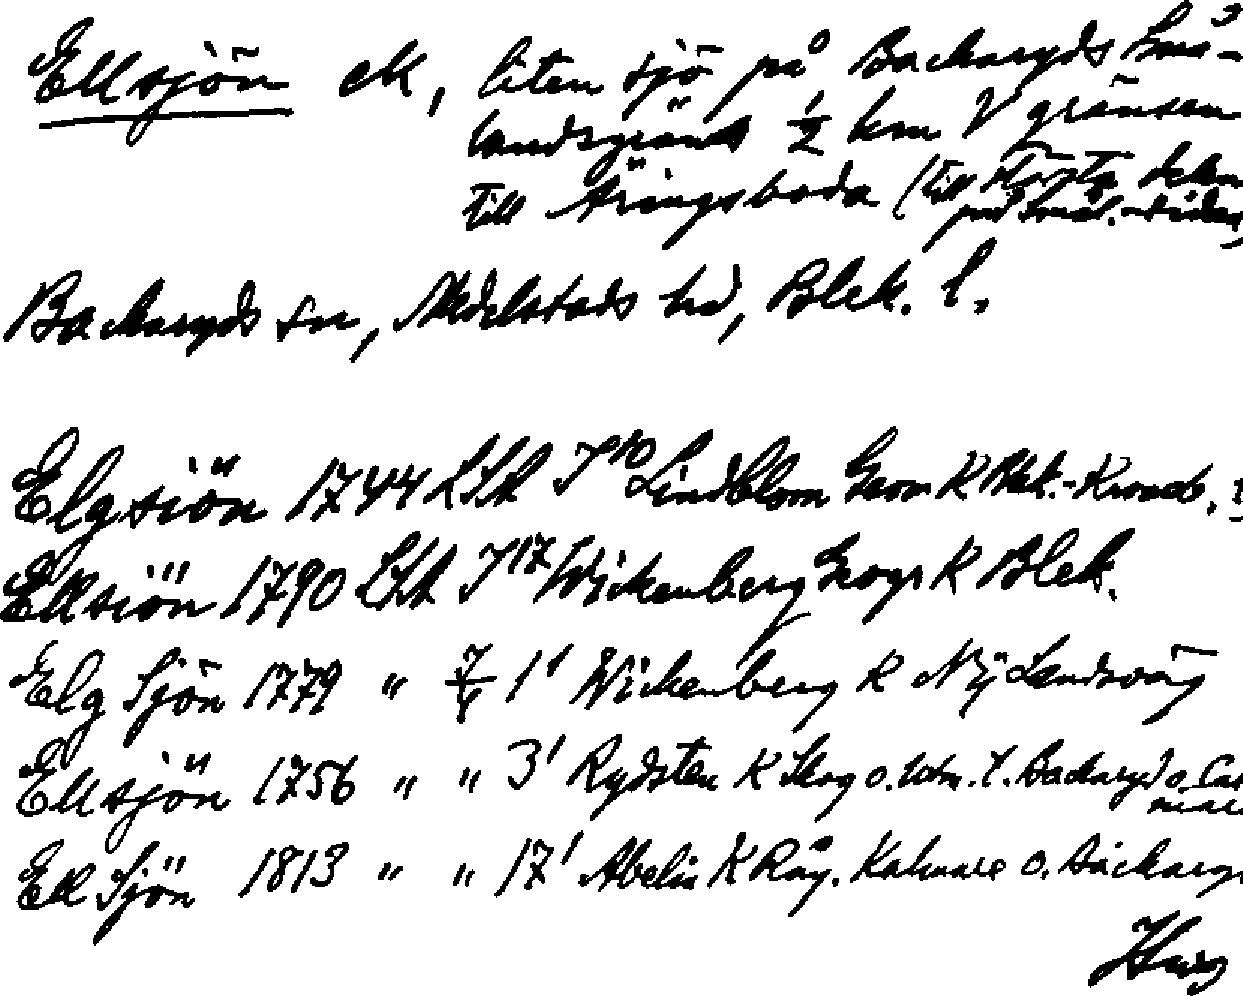 Ellsjön ek, liten sjö på Backaryds Små-
landsgräns ½ km V gränsen
till Äringsboda (till största delen
på Smål.-sidan)
Backaryds sn, Medelstads hd, Blek. l.
Elgsiön 1744 LSA J 10 Lindblom Geom K Blek.-Kronob.
Ellsiön 1790 LSA J 17 Wickenberg Geogr K Blek.
Elg Sjön 1779 " 1' Wickenberg K Ny Landsväg
Ellsjön 1756 " " 3' Rydsten K Skog o.
Ell Sjön 1813 " " 17' Abelin K Råg. Kalmare o. Backaryd